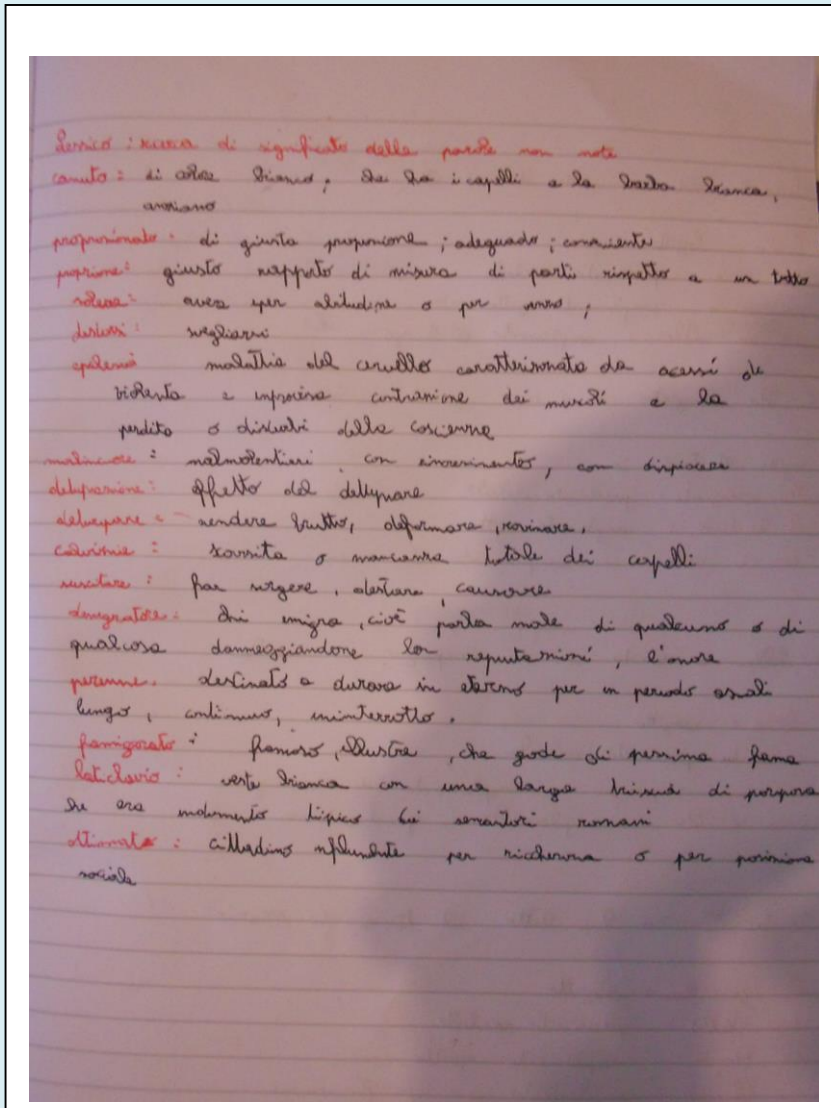 Lessico : ricerca di significato delle parole non note
canuto : di colore bianco ; che ha i capelli e la barba bianca,
anziano
proporzionato : di giusta proporzione ; adeguado ; conveniente
proprione : giusto rapporto di misura di parti rispetto a un tutto
solere : avere per abitudine o per uso ;
destarsi : svegliarsi
epilessia malathia del cervello caratterizzata da acessi de
violenta e improvisa contrazione dei muscoli e la
perdita o disturbi della coscienza
malincuore : malvolentieri con rincrescimento, com dispiacere
deturpazione : effetto del deturpare
deturpare : rendere brutto, deformare, rovinare.
calvizie : scarsita o mancanza totale dei capelli
suscitare : far sorgere , destare , causare
denigratore : chi denigra , cioè parla male di qualcuno o di
qualcosa danneggiandone la reputazione , l'onore
perenne. destinato a durare in eterno per un periodo assai
lungo , continuo, ininterrotto .
famigerato : famoso , illustre , che gode di pessima fama
laticlavio : veste bianca con una larga striscia di porpora
che era indumento tipico dei senatori romani
ottimate : cittadino influente per ricchezza o per posizione
sociale